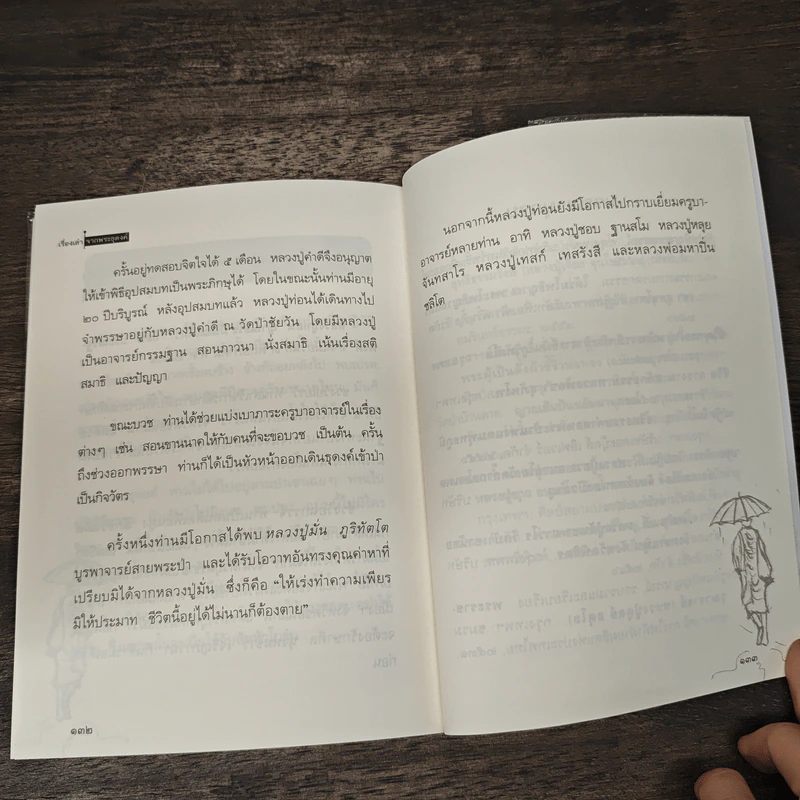 เรื่องเล่า จากพระธุดงค์
ครั้นอยู่ทดสอบจิตใจได้ ๕ เดือน หลวงปู่คำดีจึงอนุญาต
ให้เข้าพิธีอุปสมบทเป็นพระภิกษุได้ โดยในขณะนั้นท่านมีอายุ
๒๐ ปีบริบูรณ์ หลังอุปสมบทแล้ว หลวงปู่ท่อนได้เดินทางไป
จำพรรษาอยู่กับหลวงปู่คำดี ณ วัดป่าชัยวัน โดยมีหลวงปู่
เป็นอาจารย์กรรมฐาน สอนภาวนา นั่งสมาธิ เน้นเรื่องสติ
สมาธิ และปัญญา
ขณะบวช ท่านได้ช่วยแบ่งเบาภาระครูบาอาจารย์ในเรื่อง
ต่างๆ เช่น สอนขานนาคให้กับคนที่จะขอบวช เป็นต้น ครั้น
ถึงช่วงออกพรรษา ท่านก็ได้เป็นหัวหน้าออกเดินธุดงค์เข้าป่า
เป็นกิจวัตร
ครั้งหนึ่งท่านมีโอกาสได้พบ หลวงปู่มั่น ภูริทัตโต
บูรพาจารย์สายพระป่า และได้รับโอวาทอันทรงคุณค่าหาที่
เปรียบมิได้จากหลวงปู่มั่น ซึ่งก็คือ “ให้เร่งทำความเพียร
มิให้ประมาท ชีวิตนี้อยู่ได้ไม่นานก็ต้องตาย”
๑๓๒
นอกจากนี้หลวงปู่ท่อนยังมีโอกาสไปกราบเยี่ยมครูบา-
อาจารย์หลายท่าน อาทิ หลวงปู่ชอบ ฐานสโม หลวงปู่หลุย
จันทสาโร หลวงปู่เทสก์ เทสรังสี และหลวงพ่อมหาปิ่น
ชลิโต
๑๓๓